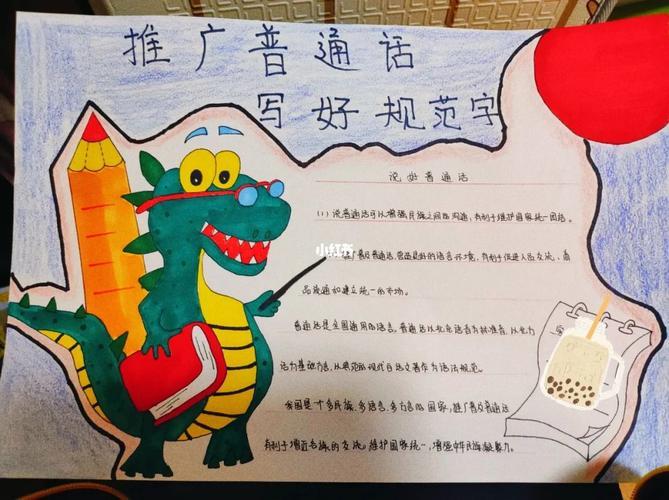 推广普通话
写好规范字
说好普通话
(1)说普通话可以增强民族之间的沟通,有利于维护国家统一团结。
推广普及普通话,营造良好的语言环境,有利于促进人员交流、商
品流通和建立统一的市场。
普通话是全国通用的语言。普通话以北京语音为标准音,从北方
话为基础方言,从典范的现代白话文著作为语法规范。
我国是一个多民族、多语言、多方言的国家,推广普及普通话
有利于增近各族的交流,维护国家统一,增强中华民族凝聚力。
小红书